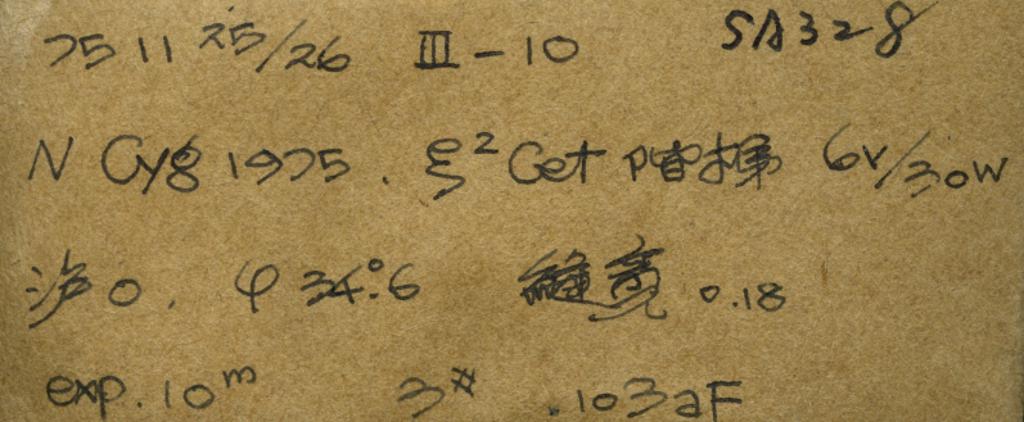 75 11 25/26 III-10 SA328
N Cyg 1975. ξ² Cet 阶梯 6V/30W
沪0. φ 34°.6 缝宽 0.18
exp. 10ᵐ 3# .103aF